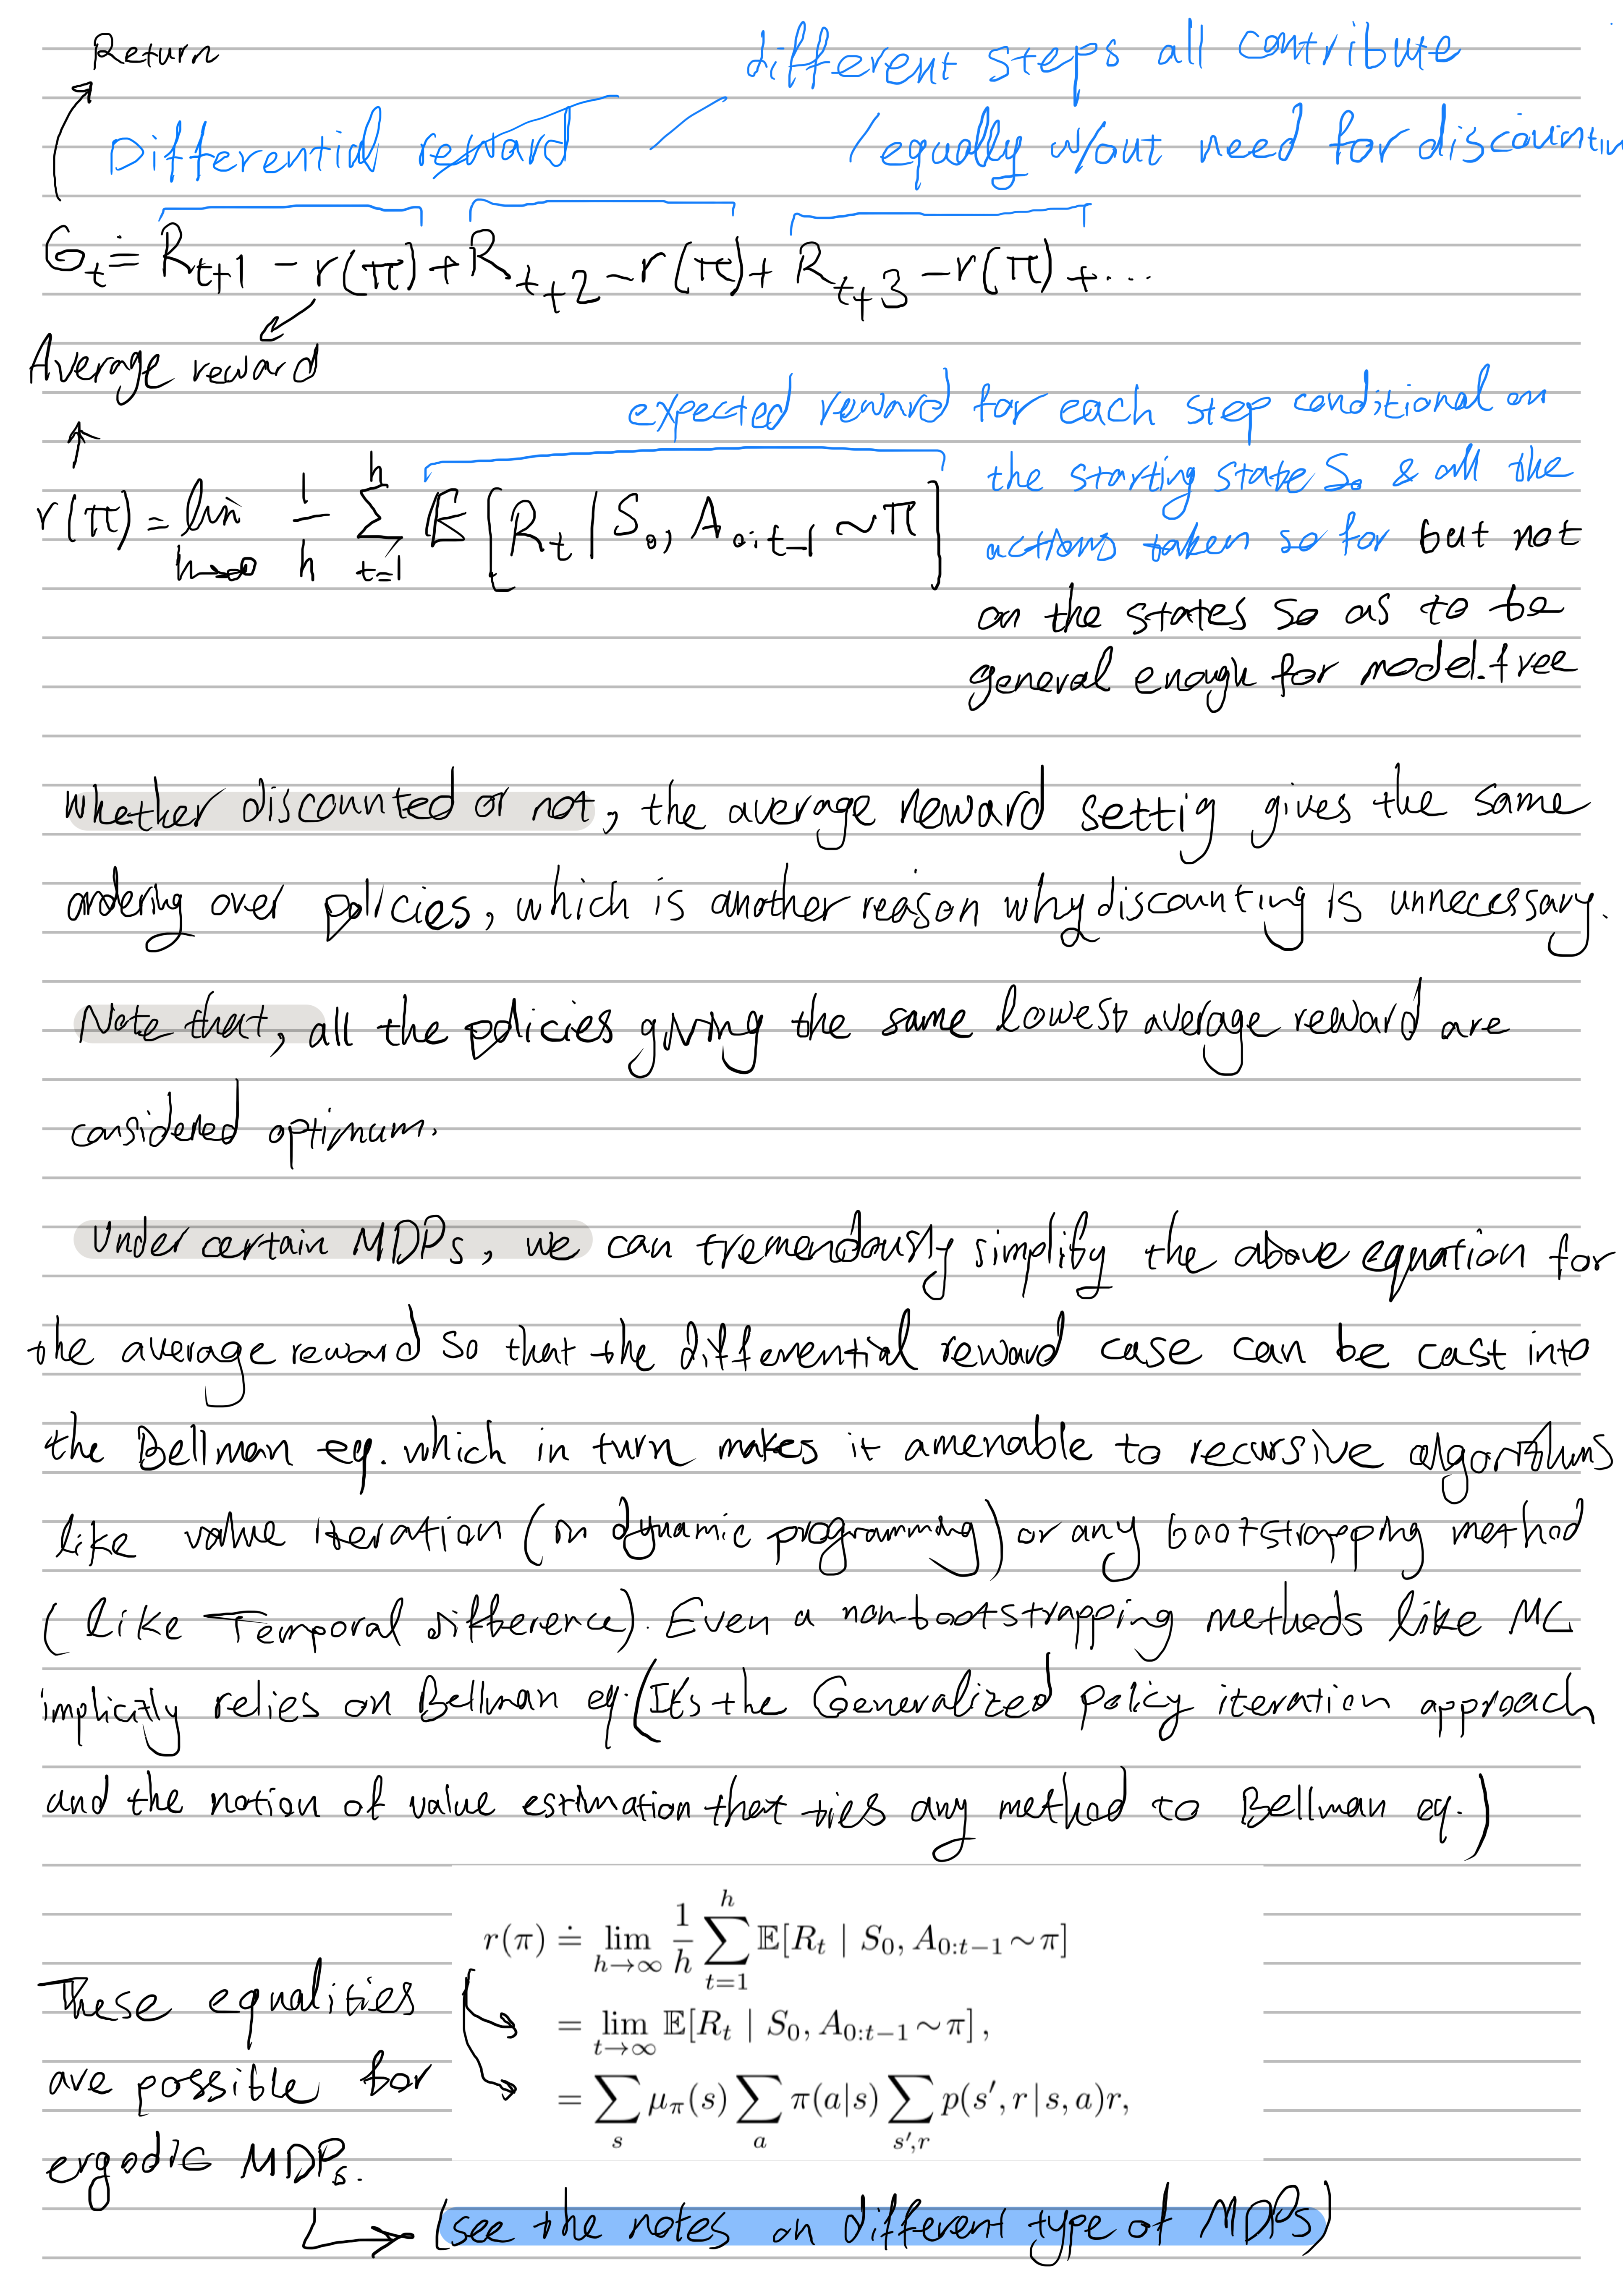 Return
different steps all contribute
Differential reward / equally w/out need for discountin
G_t ≐ R_{t+1} - r(π) + R_{t+2} - r(π) + R_{t+3} - r(π) + ...
Average reward
expected reward for each step conditional on
the starting state S₀ & all the
r(π) = lim_{h→∞} 1/h Σ_{t=1}^{h} 𝔼[R_t | S₀, A_{0:t-1} ~ π]
actions taken so far but not
on the states so as to be
general enough for model-free
whether discounted or not, the average reward settig gives the same
ordering over policies, which is another reason why discounting is unnecessary.
Note that, all the policies giving the same lowest average reward are
considered optimum.
Under certain MDPs, we can tremendously simplify the above equation for
the average reward so that the differential reward case can be cast into
the Bellman eq. which in turn makes it amenable to recursive algorithms
like value iteration (in dynamic programming) or any bootstrapping method
(like Temporal difference). Even a non-bootstrapping methods like MC
implicitly relies on Bellman eq. (It's the Generalized policy iteration approach
and the notion of value estimation that ties any method to Bellman eq.)
r(π) ≐ lim_{h→∞} 1/h Σ_{t=1}^{h} 𝔼[R_t | S₀, A_{0:t-1} ~ π]
= lim_{t→∞} 𝔼[R_t | S₀, A_{0:t-1} ~ π],
= Σ_s μ_π(s) Σ_a π(a|s) Σ_{s',r} p(s', r | s, a)r,
These equalities
are possible for
ergodic MDPs.
(see the notes on different type of MDPs)